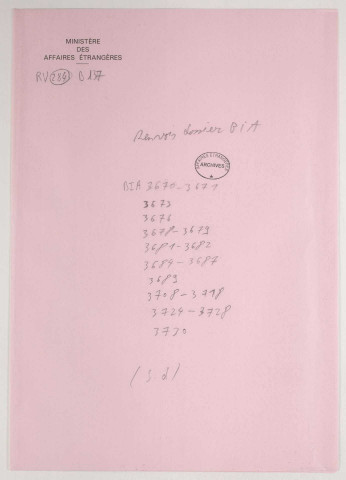 MINISTÈRE
DES
AFFAIRES ÉTRANGÈRES
RV 284 D 157
Renvois dossiers BIA
ARCHIVES
BIA 3670-3671
3673
3676
3678-3679
3681-3682
3684-3687
3689
3708-3718
3724-3728
3730
(s d)